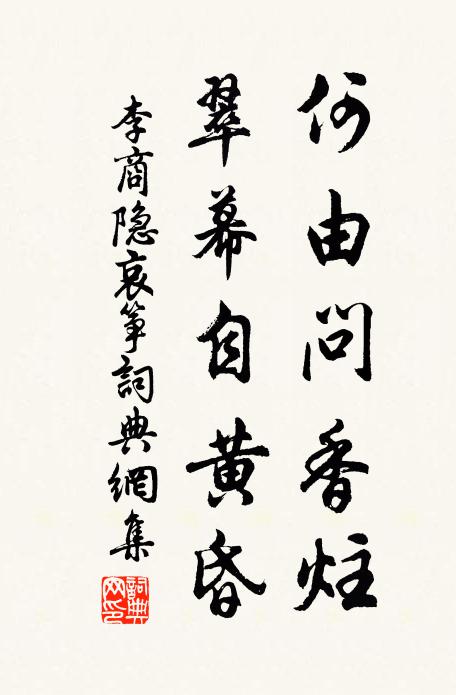 何由問香炷
翠幕自黄昏
李商隐哀筝詞典網集
詞典網印